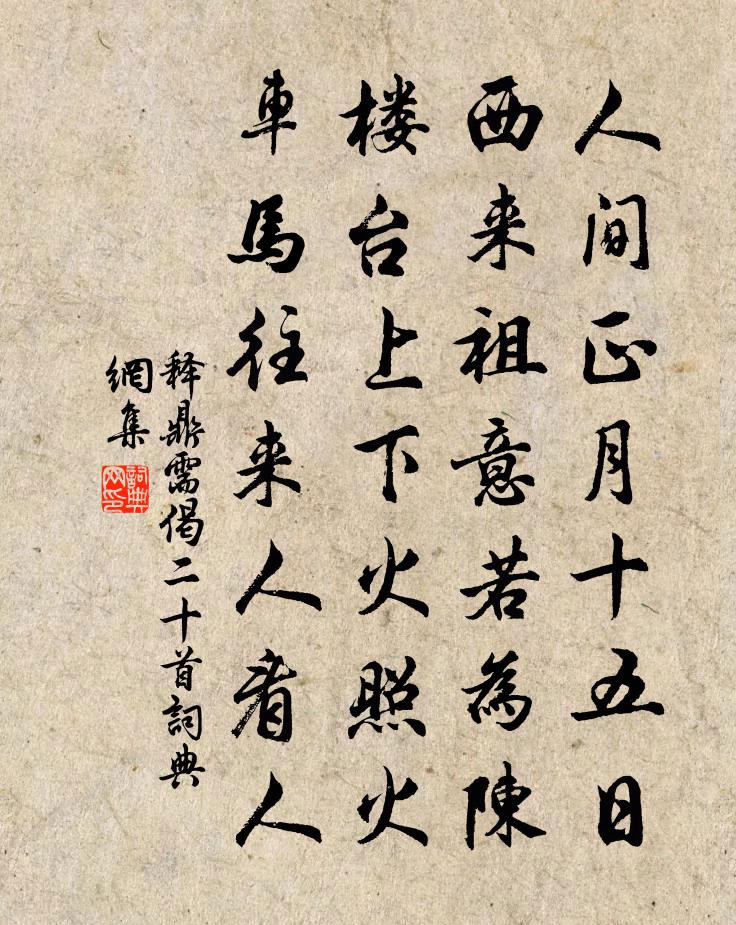 人间正月十五日
西来祖意若為陳
楼台上下火照火
車馬往来人看人
释鼎需偈二十首詞典
網集
詞典
网印